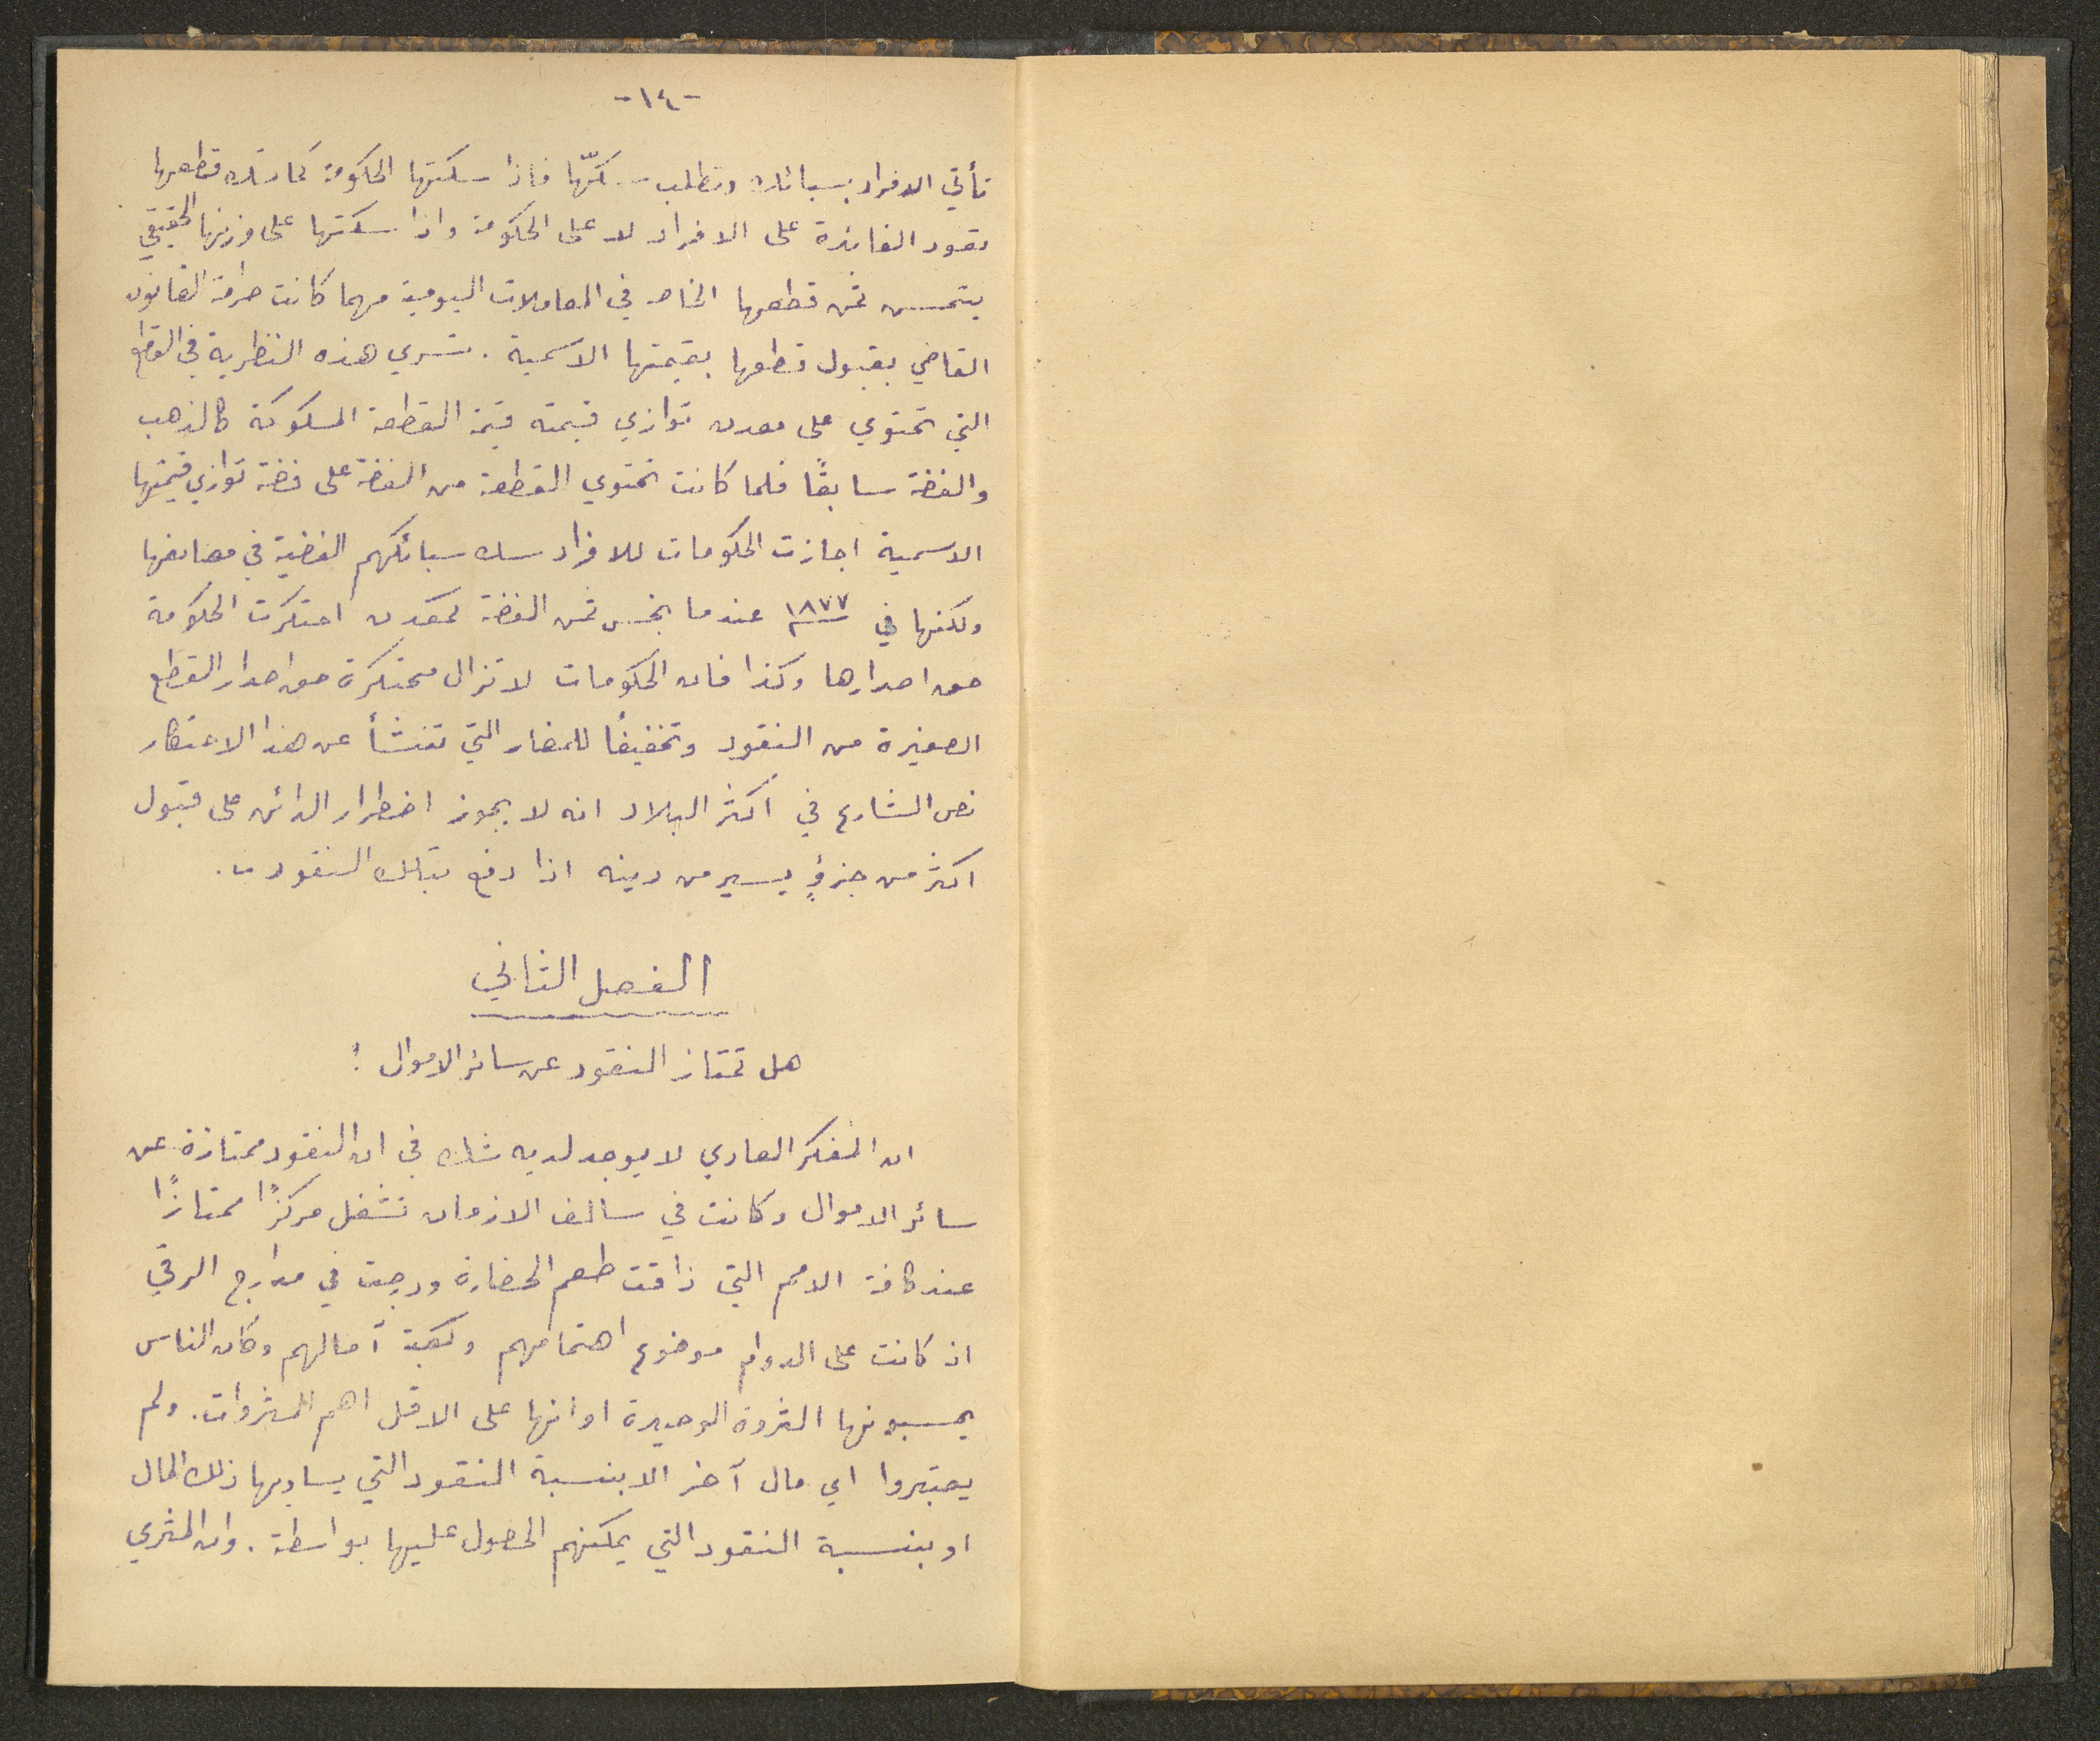 -١٤-
تأتي الافراد بسبائك وتطلب سكّها فاذا سكتها الحكومة كما تسك قطعها
تعود الفائدة على الافراد لا على الحكومة واذا سكتها على وزنها الحقيقي
يتحسن ثمن قطعها الخاص في المعاملات اليومية مهما كانت صرامة القانون
القاضي بقبول قطعها بقيمتها الاسمية. تسري هذه النظرية في القطع
التي تحتوي على معدن توازي قيمته قيمة القطعة المسكوكة كالذهب
والفضة سابقًا فلما كانت تحتوي القطعة من الفضة على فضة توازي قيمتها
الاسمية اجازت الحكومات للافراد سك سبائكهم الفضية في مصانعها
ولكنها في ١٨٧٧ عندما بخس ثمن الفضة كمعدن احتكرت الحكومة
حق اصدارها وكذا فان الحكومات لا تزال محتكرة حق اصدار القطع
الصغيرة من النقود وتخفيفًا للمضار التي تنشأ عن هذا الاحتكار
نص الشارع في اكثر البلاد انه لا يجوز اضطرار الدائن على قبول
اكثر من جزءٍ يسير من دينه اذا دفع بتلك النقود.
الفصل الثاني
هل تمتاز النقود عن سائر الاموال؟
ان المفكر العادي لا يوجد لديه شك في ان النقود ممتازة عن
سائر الاموال وكانت في سالف الازمان تشغل مركزًا ممتازًا
عند كافة الامم التي ذاقت طعم الحضارة ودرجت في مدارج الرقي
اذ كانت على الدوام موضوع اهتمامهم وكعبة آمالهم وكان الناس
يحسبونها الثروة الوحيدة او انها على الاقل اهم الثروات. ولم
يعتبروا اي مال آخر الا بنسبة النقود التي يساويها ذلك المال
او بنسبة النقود التي يمكنهم الحصول عليها بواسطة. وان المثري